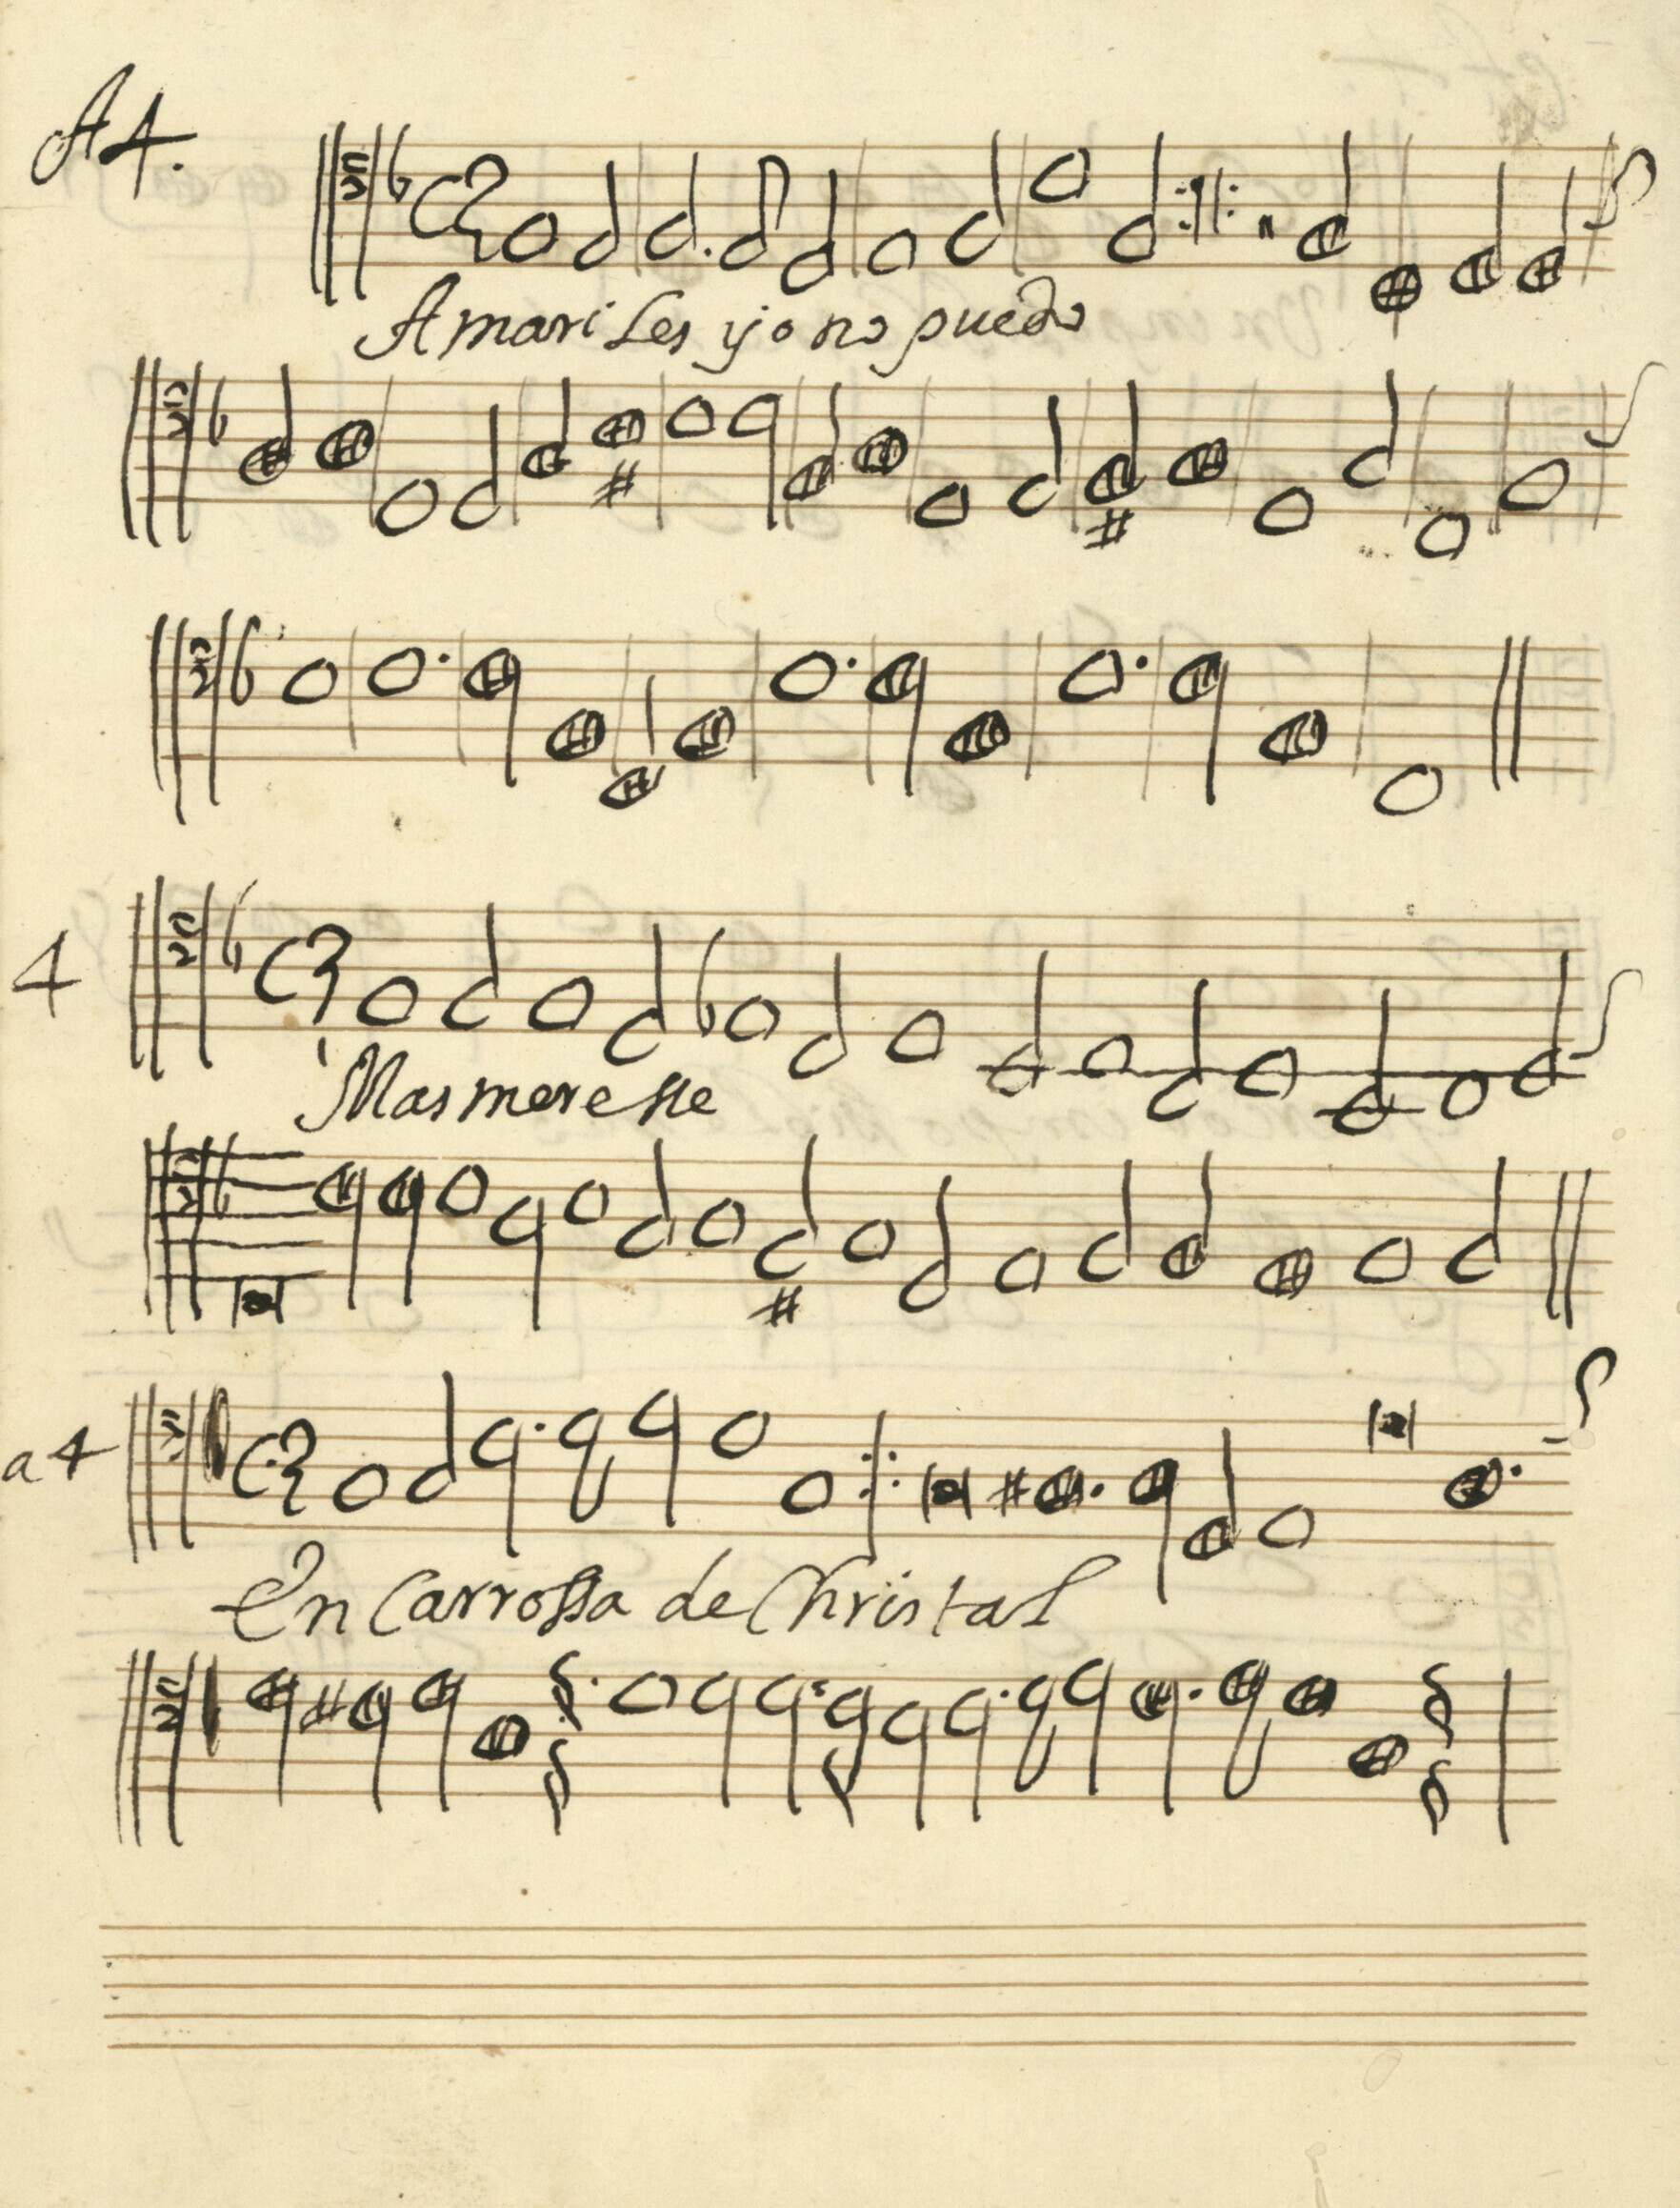 A4.
Amariles yo no puedo
4
Mas meresse
a4
En Carrossa de Christal